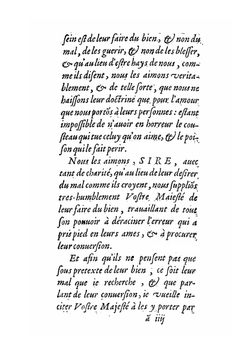 sein est de leur faire du bien, & non du
mal, de les guerir, & non de les blesser,
& qu'au lieu d'estre hays de nous, com-
me ils disent, nous les aimons verita-
blement, & de telle sorte, que nous ne
haïssons leur doctrine que pour l'amour
que nous portōs à leurs personnes : estant
impossible de n'avoir en horreur le cou-
steau qui tue celuy qu'on aime, & le poi-
son qui le fait perir.
Nous les aimons, SIRE, avec
tant de charité, qu'au lieu de leur desirer
du mal comme ils croyent, nous supplıōs
tres-humblement Vostre Majesté de
leur faire du bien, travaillant de tout
son pouvoir à déraciner l'erreur qui a
pris pied en leurs ames, & à procurer
leur conversion.
Et afin qu'ils ne pensent pas que
sous pretexte de leur bien, ce soit leur
mal que ie recherche, & que par-
lant de leur conversion, ie vueille in-
citer Vostre Majesté à les y porter par
ã iiij